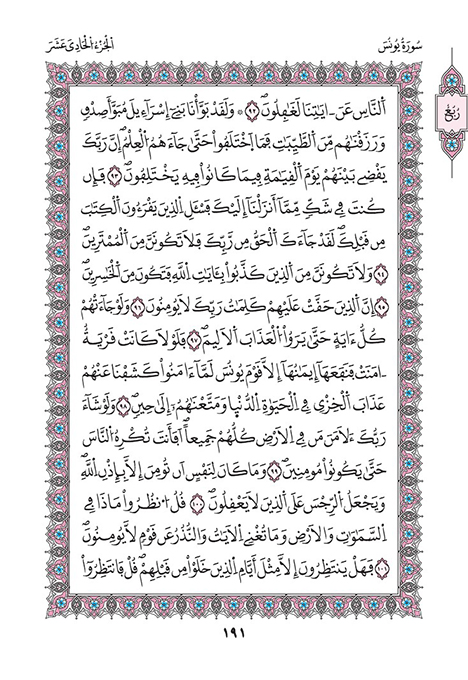 سُورَةُ يُونُسَ
الجُزْءُ الحَادِي عَشَرَ
رُبُع
اَ۬لنَّاسِ عَنَ اٰيَٰتِنَا لَغَٰفِلُونَۖ ٩٢ ۞ وَلَقَدْ بَوَّأْنَا بَنِےٓ إِسْرَآءِيلَ مُبَوَّأَ صِدْقٖ
وَرَزَقْنَٰهُم مِّنَ اَ۬لطَّيِّبَٰتِ فَمَا اَ۪خْتَلَفُواْ حَتَّىٰ جَآءَهُمُ اُ۬لْعِلْمُۖ إِنَّ رَبَّكَ
يَقْضِے بَيْنَهُمْ يَوْمَ اَ۬لْقِيَٰمَةِ فِيمَا كَانُواْ فِيهِ يَخْتَلِفُونَۖ ٩٣ فَإِن
كُنتَ فِے شَكّٖ مِّمَّآ أَنزَلْنَآ إِلَيْكَ فَسْـَٔلِ اِ۬لذِينَ يَقْرَءُونَ اَ۬لْكِتَٰبَ
مِن قَبْلِكَۖ لَقَدْ جَآءَكَ اَ۬لْحَقُّ مِن رَّبِّكَ فَلَا تَكُونَنَّ مِنَ اَ۬لْمُمْتَرِينَۖ
٩٤ وَلَا تَكُونَنَّ مِنَ اَ۬لذِينَ كَذَّبُواْ بِـَٔايَٰتِ اِ۬للَّهِ فَتَكُونَ مِنَ اَ۬لْخَٰسِرِينَۖ
٩٥ إِنَّ اَ۬لذِينَ حَقَّتْ عَلَيْهِمْ كَلِمَٰتُ رَبِّكَ لَا يُومِنُونَ ٩٦ وَلَوْ جَآءَتْهُمْ
كُلُّ ءَايَةٍ حَتَّىٰ يَرَوُاْ اُ۬لْعَذَابَ اَ۬لَالِيمَۖ ٩٧ فَلَوْلَا كَانَتْ قَرْيَةٌ
اٰمَنَتْ فَنَفَعَهَآ إِيمَٰنُهَآ إِلَّا قَوْمَ يُونُسَ لَمَّآ ءَامَنُواْ كَشَفْنَا عَنْهُمْ
عَذَابَ اَ۬لْخِزْيِ فِے اِ۬لْحَيَوٰةِ اِ۬لدُّنْي۪ا وَمَتَّعْنَٰهُمُۥٓ إِلَىٰ حِينٖۖ ٩٨ وَلَوْ شَآءَ
رَبُّكَ ءَلَامَنَ مَن فِے اِ۬لَارْضِ كُلُّهُمْ جَمِيعاًۖ اَفَأَنتَ تُكْرِهُ اُ۬لنَّاسَ
حَتَّىٰ يَكُونُواْ مُومِنِينَۖ ٩٩ وَمَا كَانَ لِنَفْسٍ اَن تُومِنَ إِلَّا بِإِذْنِ اِ۬للَّهِۖ
وَيَجْعَلُ اُ۬لرِّجْسَ عَلَى اَ۬لذِينَ لَا يَعْقِلُونَۖ ١٠٠ قُلُ اُ۟نظُرُواْ مَاذَا فِے
اِ۬لسَّمَٰوَٰتِ وَالَارْضِۖ وَمَا تُغْنِے اِ۬لَايَٰتُ وَالنُّذُرُ عَن قَوْمٖ لَّا يُومِنُونَۖ
١٠١ فَهَلْ يَنتَظِرُونَ إِلَّا مِثْلَ أَيَّامِ اِ۬لذِينَ خَلَوْاْ مِن قَبْلِهِمْۖ قُلْ فَانتَظِرُوٓاْ
١٩١